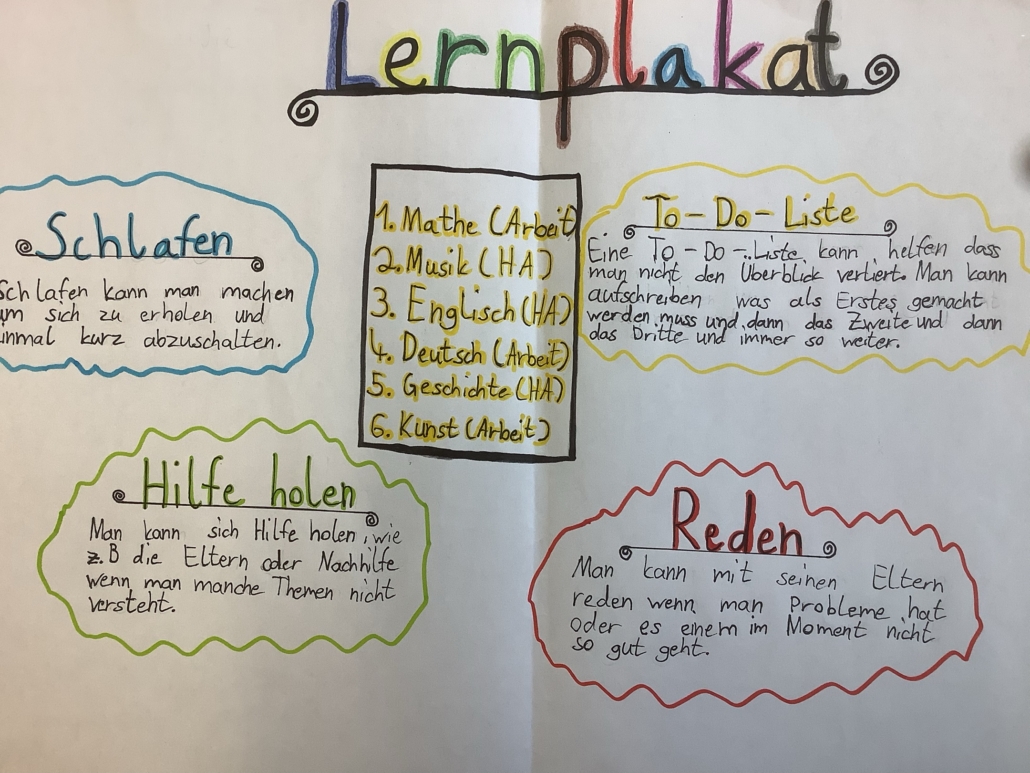 Lernplakat
Schlafen
Schlafen kann man machen
um sich zu erholen und
inmal kurz abzuschalten.
1. Mathe (Arbeit)
2. Musik (HA)
3. Englisch (HA)
4. Deutsch (Arbeit)
5. Geschichte (HA)
6. Kunst (Arbeit)
To-Do-Liste
Eine To-Do-Liste kann helfen dass
man nicht den Überblick verliert. Man kann
aufschreiben was als Erstes gemacht
werden muss und dann das Zweite und dann
das Dritte und immer so weiter.
Hilfe holen
Man kann sich Hilfe holen, wie
z.B die Eltern oder Nachhilfe
wenn man manche Themen nicht
versteht.
Reden
Man kann mit seinen Eltern
reden wenn man Probleme hat
oder es einem im Moment nicht
so gut geht.